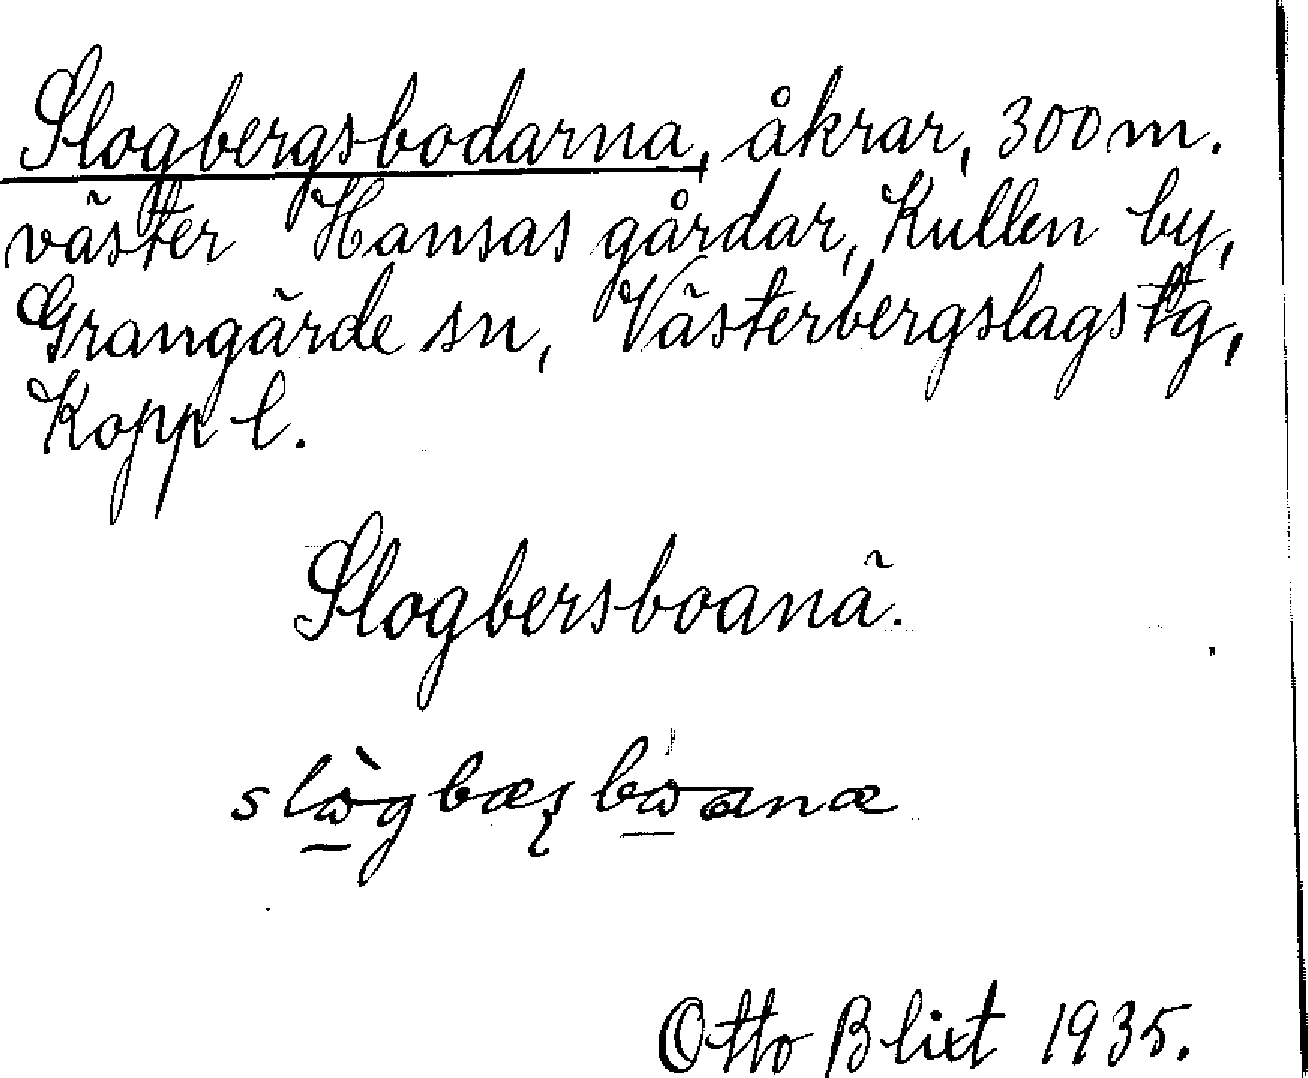 Slogbergsbodarna, åkrar, 300 m.
väster Hansas gårdar, Kullen by,
Grangärde sn, Västerbergslags tg,
Kopp l.
Slogbersboanä.
Otto Blixt 1935.